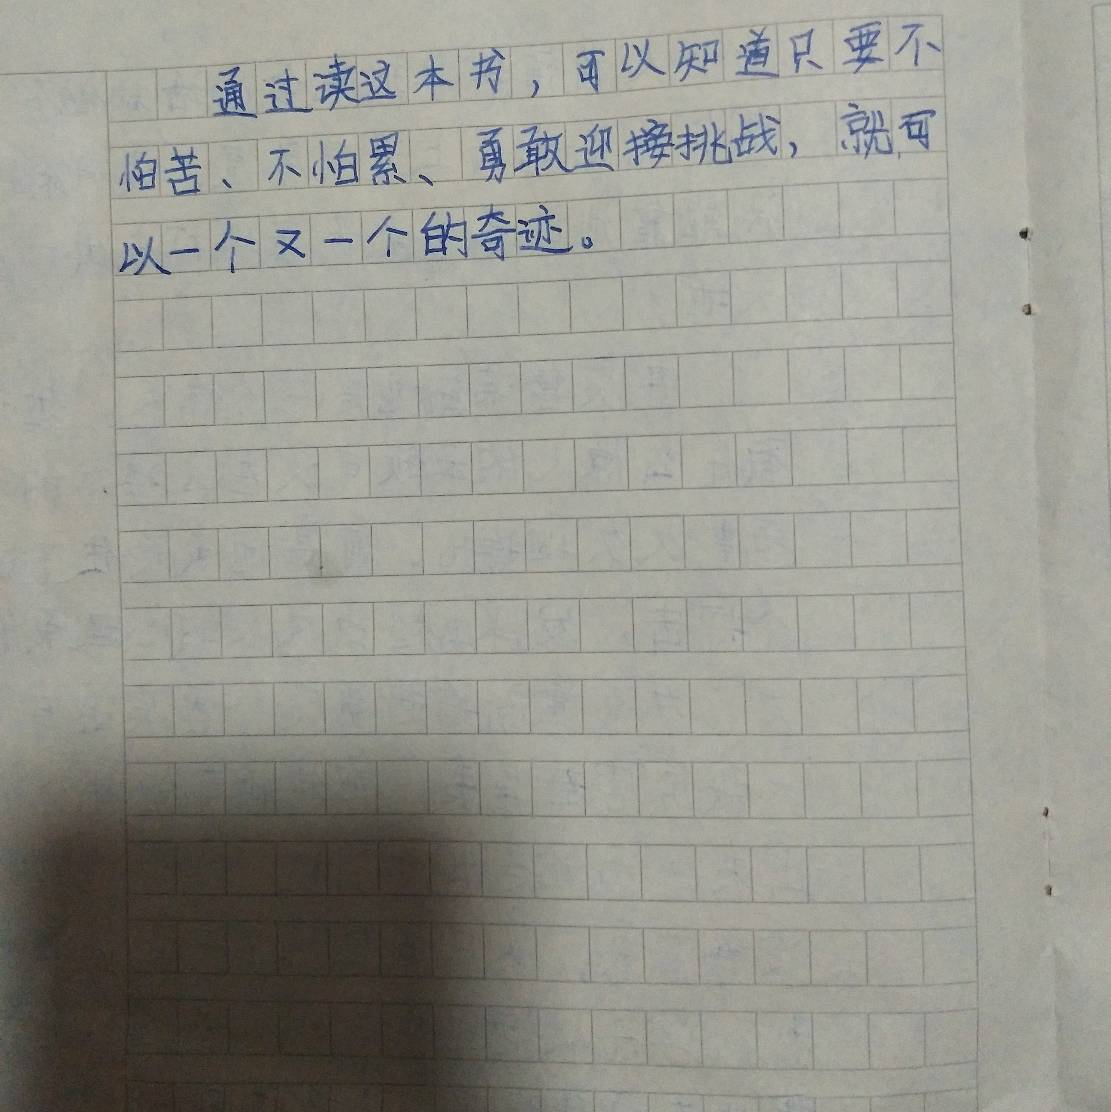 通过读这本书，可以知道只要不
怕苦、不怕累、勇敢迎接挑战，就可
以一个又一个的奇迹。